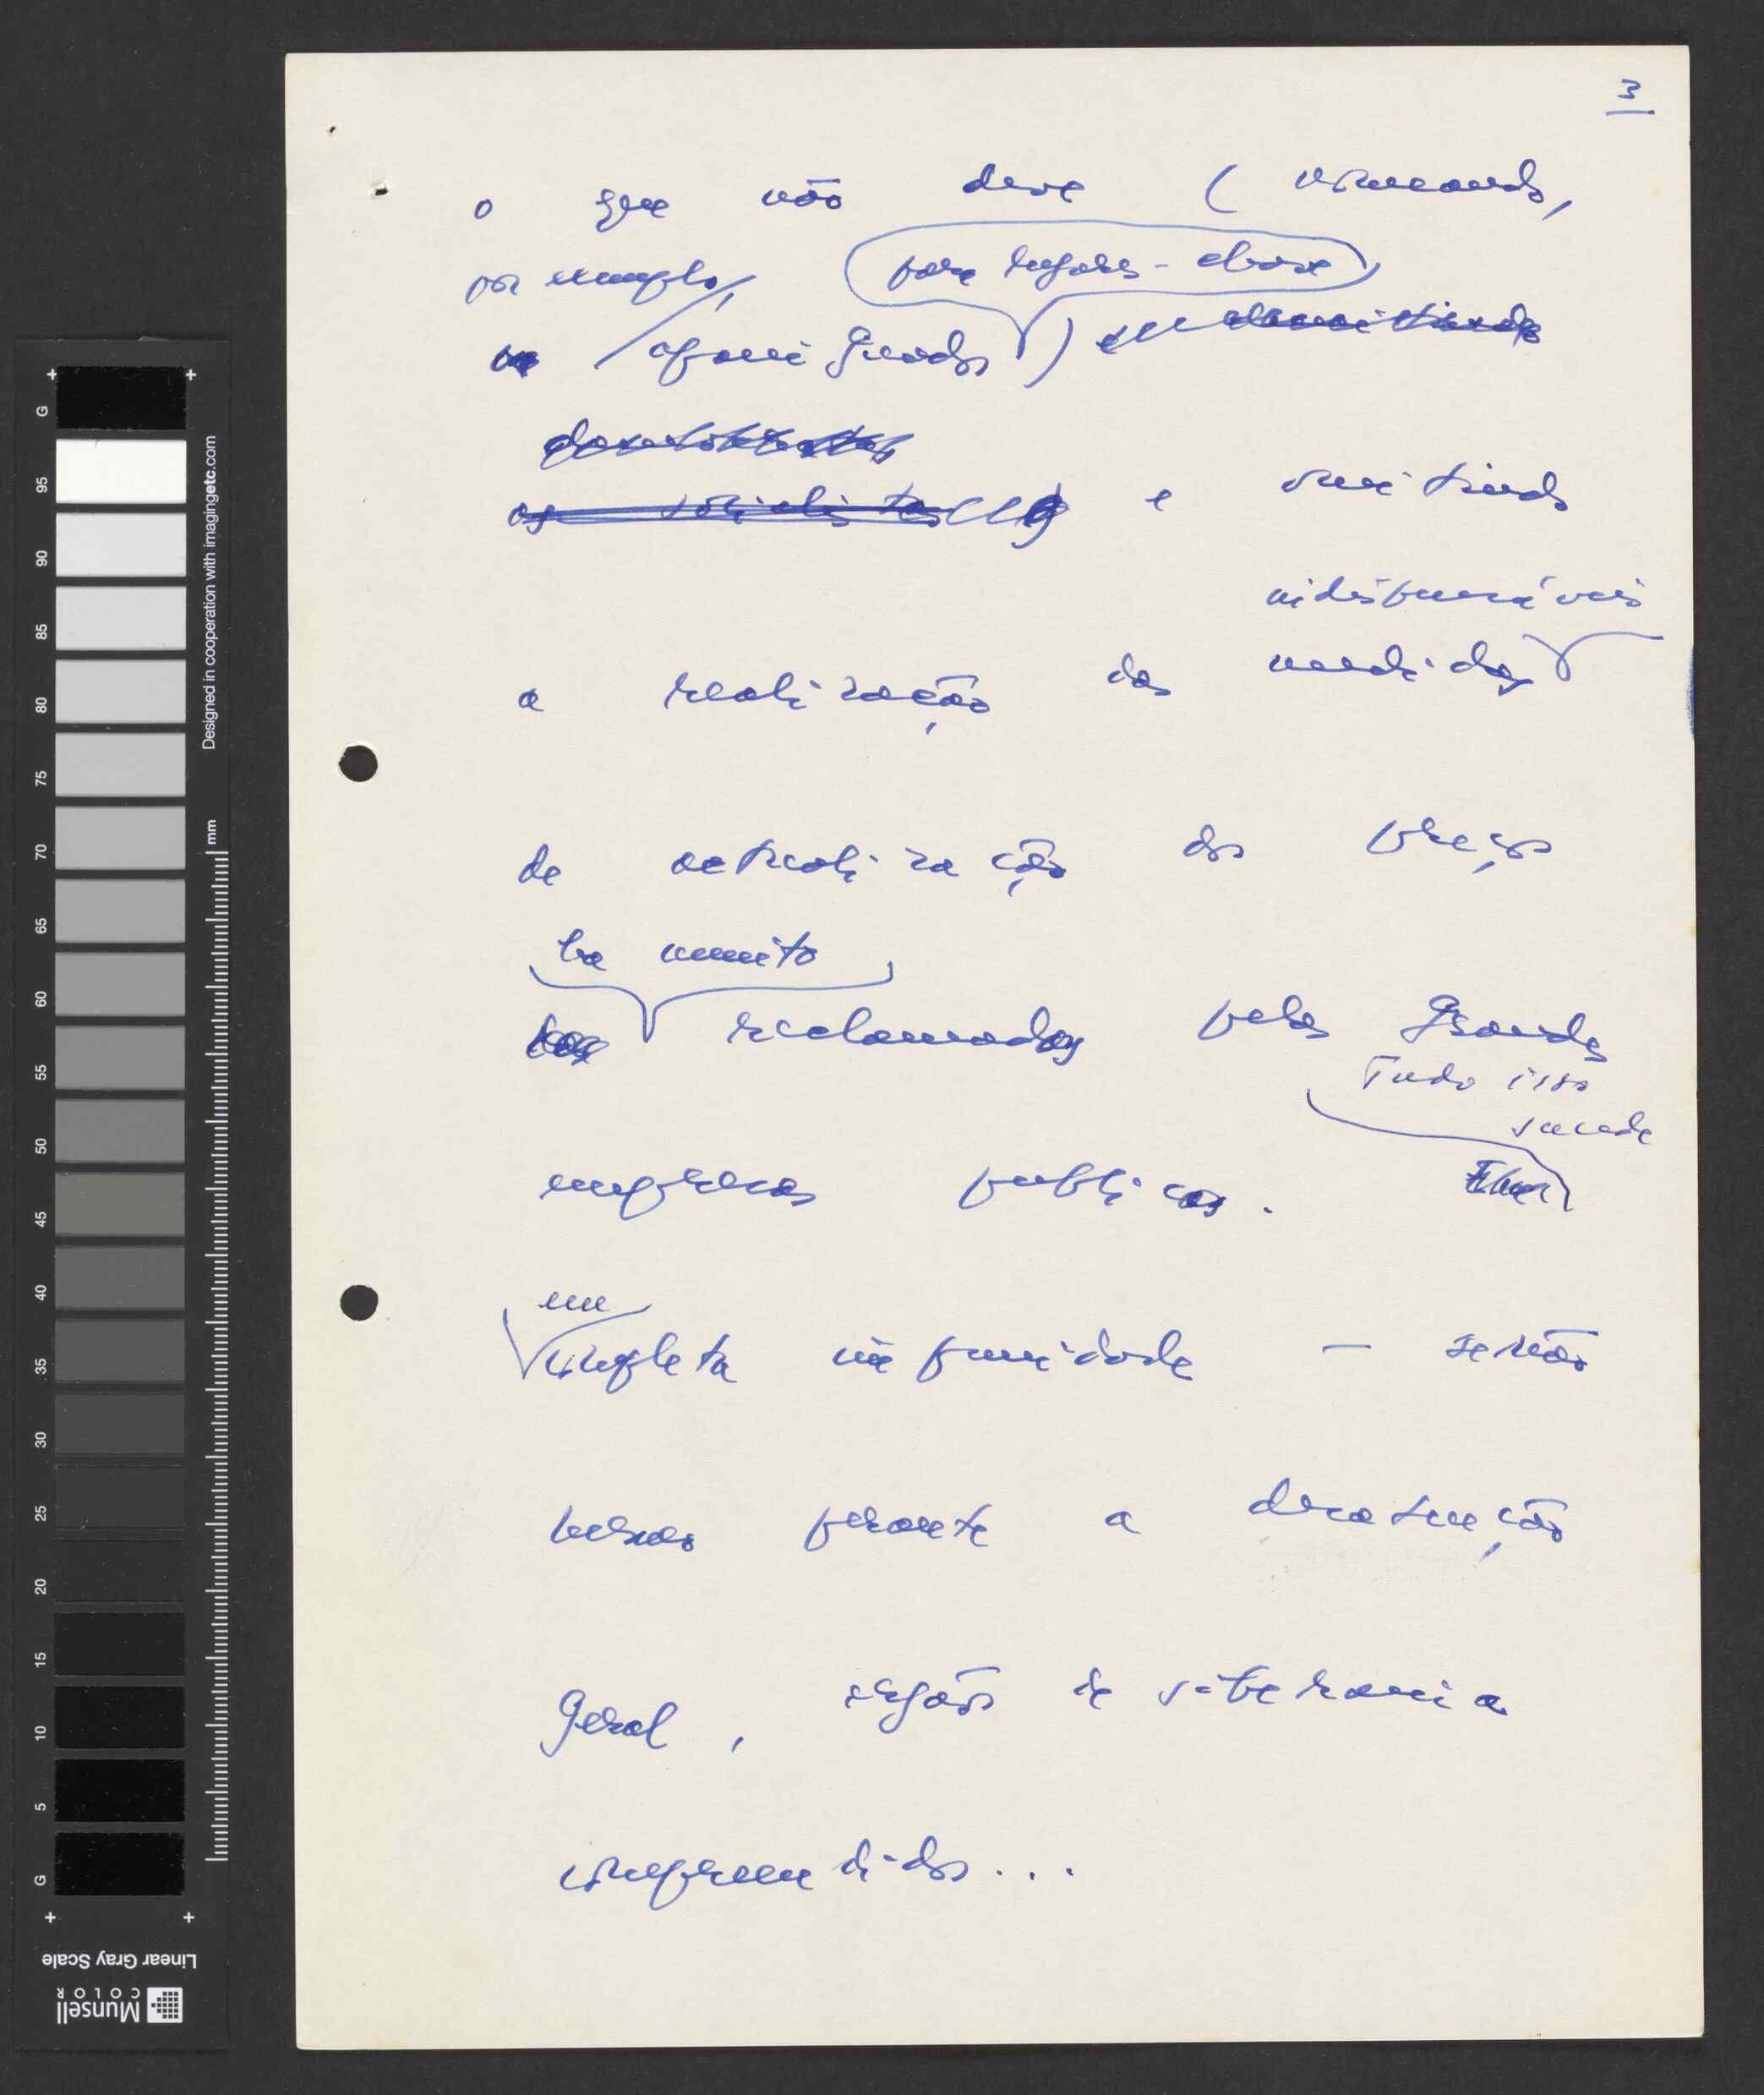 3
o que não deve (nomeando,
por exemplo, para lugares-chave
apaniguados) e
e omitindo
indispensáveis
a realização das medidas
de actualização dos preços
há muito
reclamadas pelas grandes
Tudo isso
sucede
empresas públicas.
em
completa impunidade – senão
mesmo perante a
geral, órgãos de soberania
compreendidos...
Designed in cooperation with imagingetc.com
mm
G 95 90 85 80 75 70 65 60 55 50 45 40 35 30 25 20 15 10 5 G
Linear Gray Scale
Munsell
COLOR